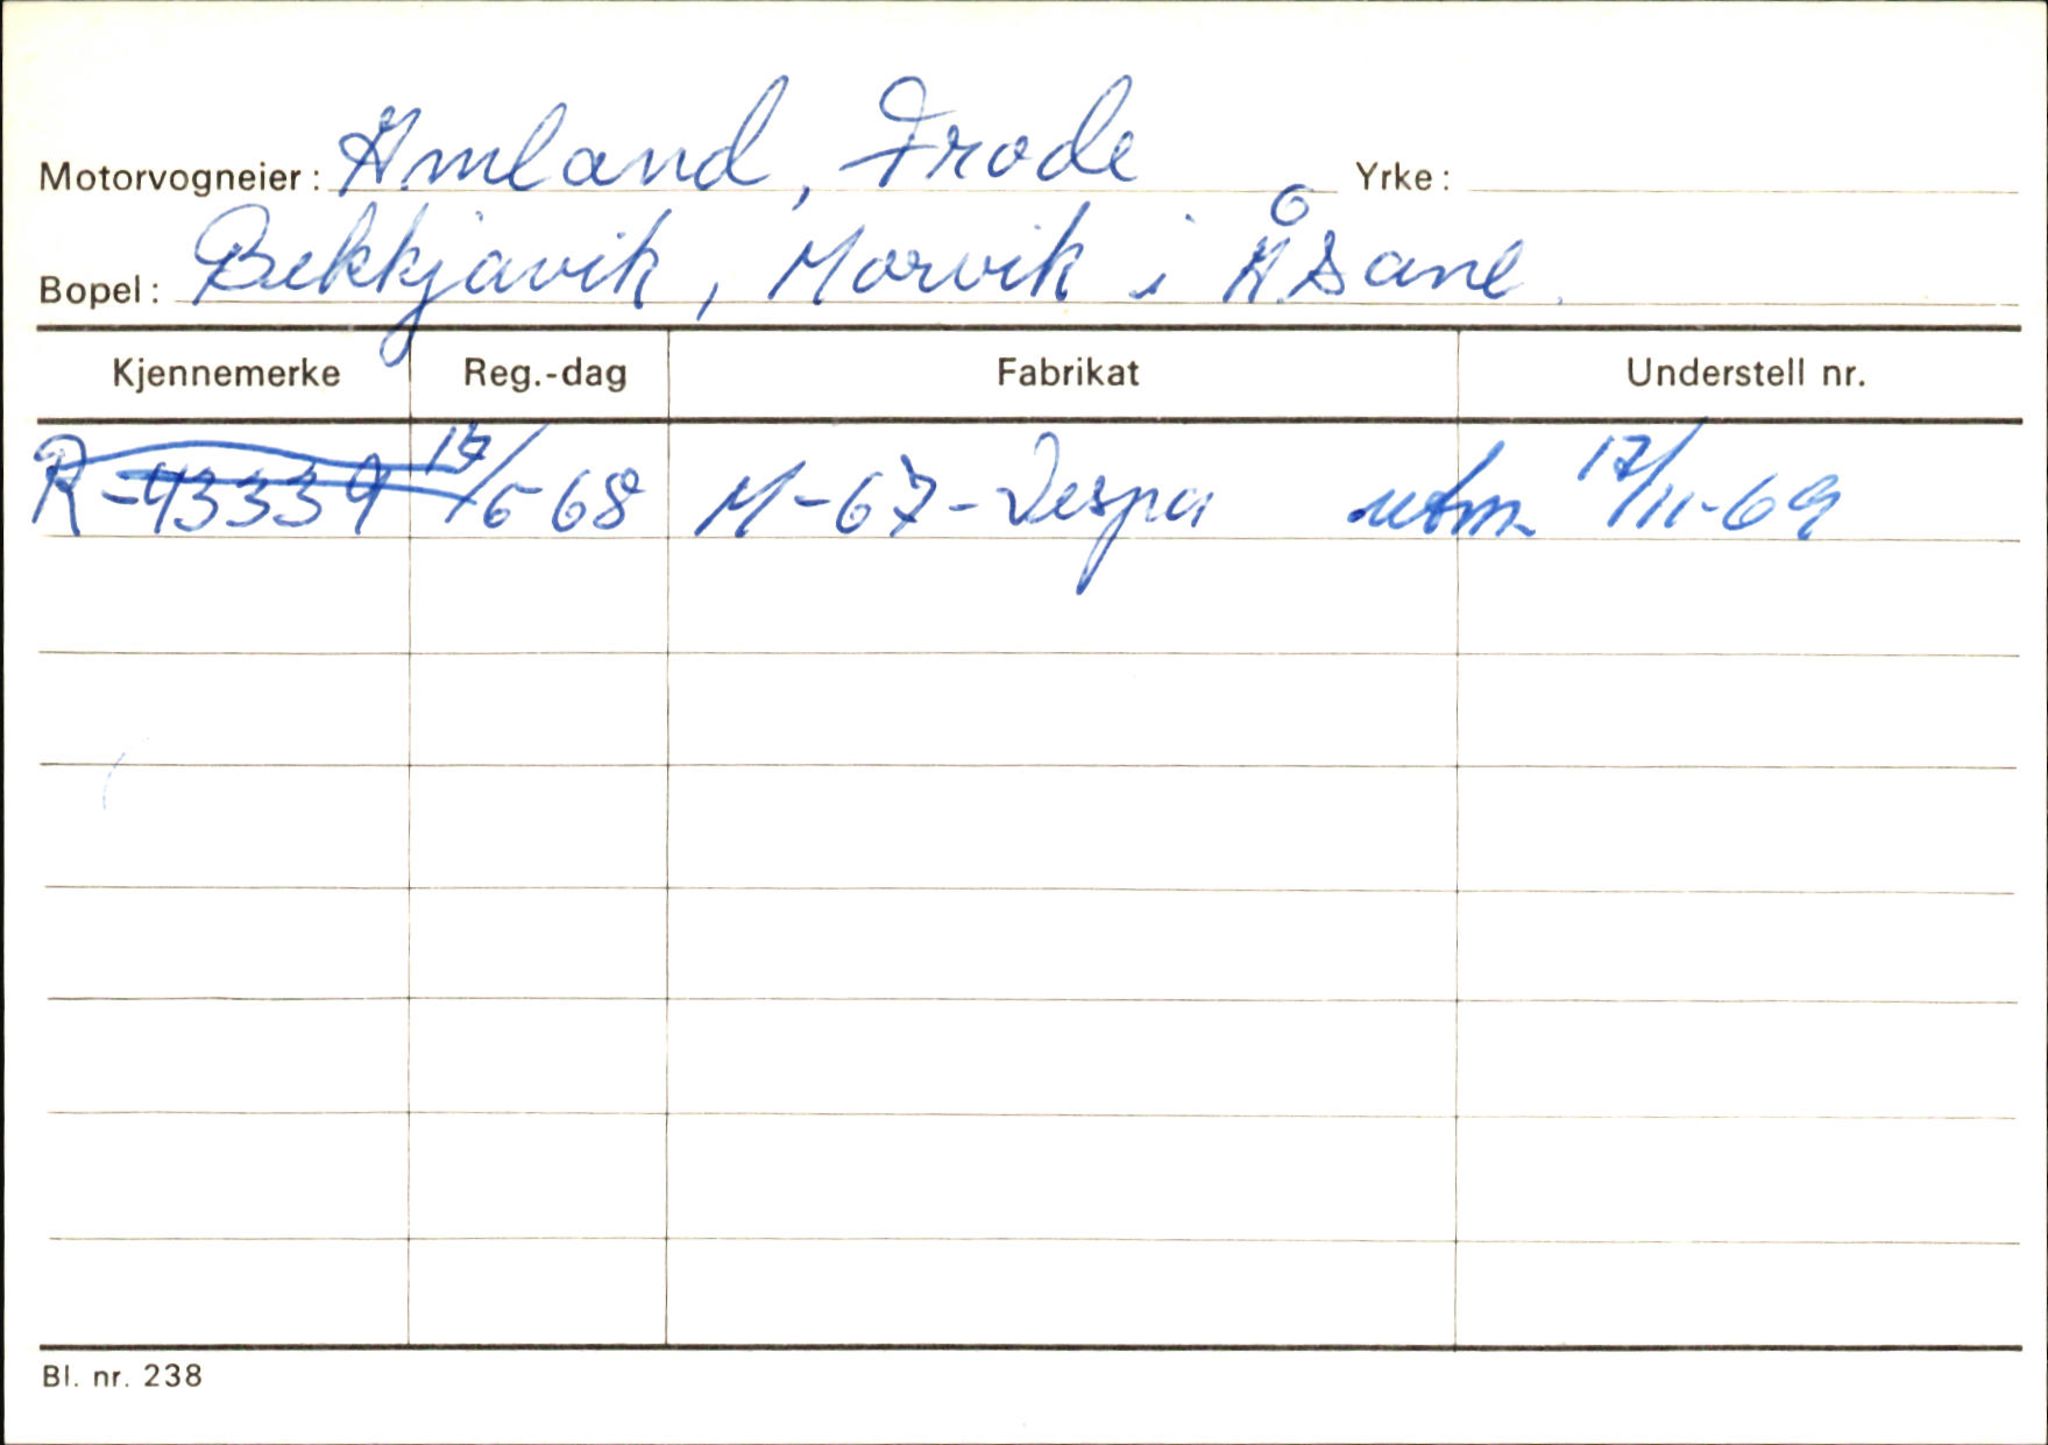 Motorvogneier: Amland, Frode Yrke:
Bopel: Bekkjavik, Morvik i Åsane.
Kjennemerke Reg.-dag Fabrikat Understell nr.
R-43339 /6-68 M-67-Vespa utm. 17/11-69
Bl. nr. 238